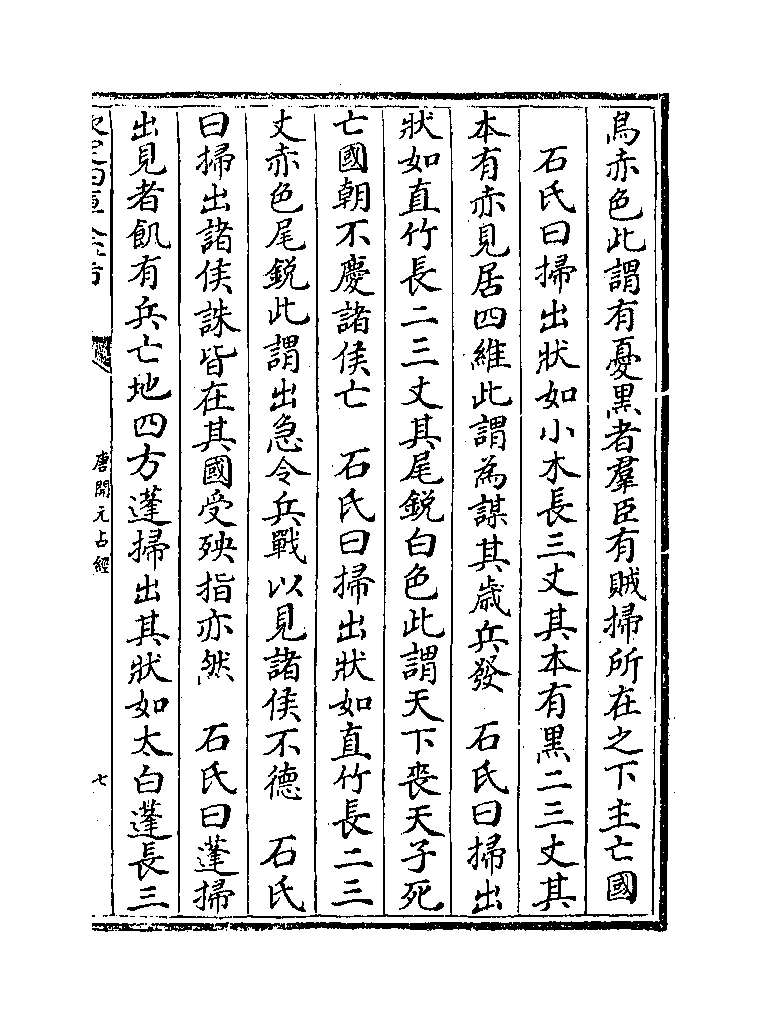 鳥赤色此謂有憂黑者羣臣有賊掃所在之下主亡國
石氏曰掃出狀如小木長三丈其本有黑二三丈其
本有赤見居四維此謂為謀其歳兵發　石氏曰掃出
狀如直竹長二三丈其尾鋭白色此謂天下喪天子死
亡國朝不慶諸侯亡　石氏曰掃出狀如直竹長二三
丈赤色尾鋭此謂出急令兵戰以見諸侯不德　石氏
曰掃出諸侯誅皆在其國受殃指亦然　石氏曰蓬掃
出見者飢有兵亡地四方蓬掃出其狀如太白蓬長三
唐開元占經
七